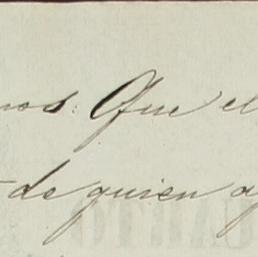 nos: Que el
de quien a